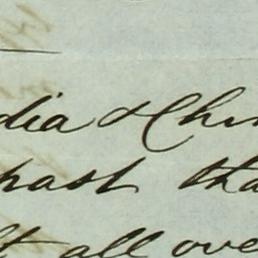 dia & Chin
past tha
lt all ove